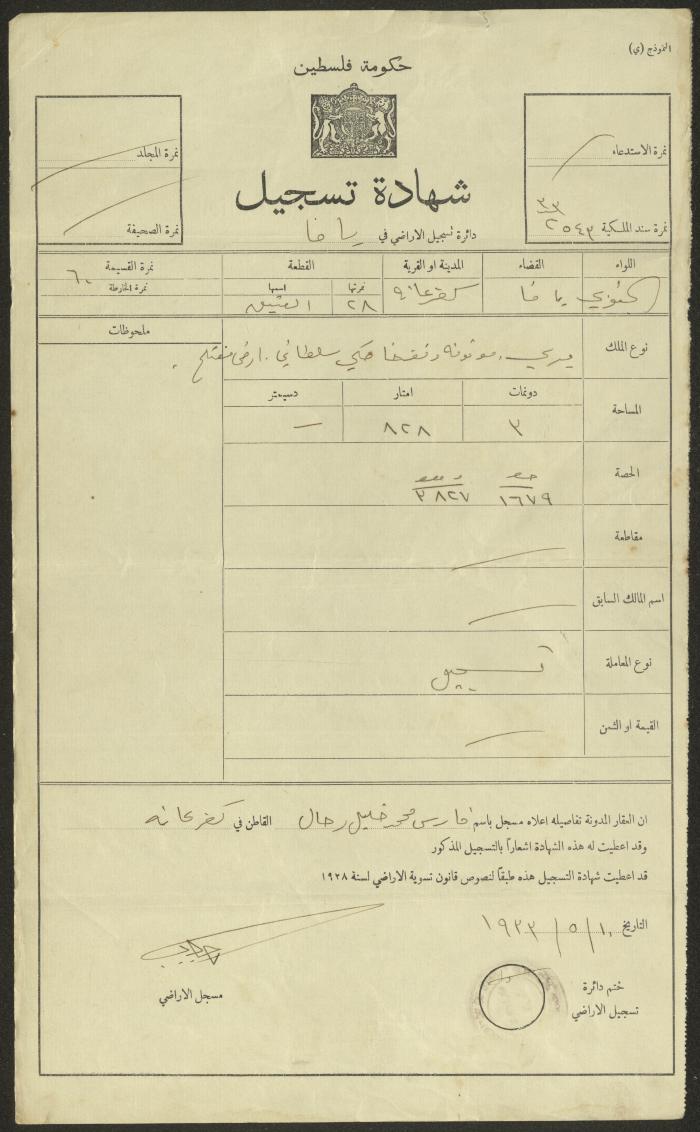 النموذج (ي)
حكومة فلسطين
نمرة الاستدعاء
نمرة سند الملكية ٢٥٤٣/٣٣
نمرة المجلد
نمرة الصحيفة
شهادة تسجيل
دائرة تسجيل الاراضي في يافا
اللواء القضاء المدينة او القرية القطعة نمرة القسيمة
نمرتها اسمها نمرة الخارطة
الجنوبي يافا كفرعانه ٢٨ العتيق ٦٠
ملحوظات
نوع الملك ميري
المساحة دونمات امتار دسيمتر
٣ ٨٢٨ —
الحصة
١٦٧٩ ٣٨٢٧
مقاطعة
اسم المالك السابق
نوع المعاملة تسجيل
القيمة او الثمن
ان العقار المدونة تفاصيله اعلاه مسجل باسم فارس محمد خليل رحال القاطن في كفرعانه
وقد اعطيت له هذه الشهادة اشعاراً بالتسجيل المذكور
قد اعطيت شهادة التسجيل هذه طبقاً لنصوص قانون تسوية الاراضي لسنة ١٩٢٨
التاريخ ١٠/٥/١٩٣٣
ختم دائرة
تسجيل الاراضي
مسجل الاراضي